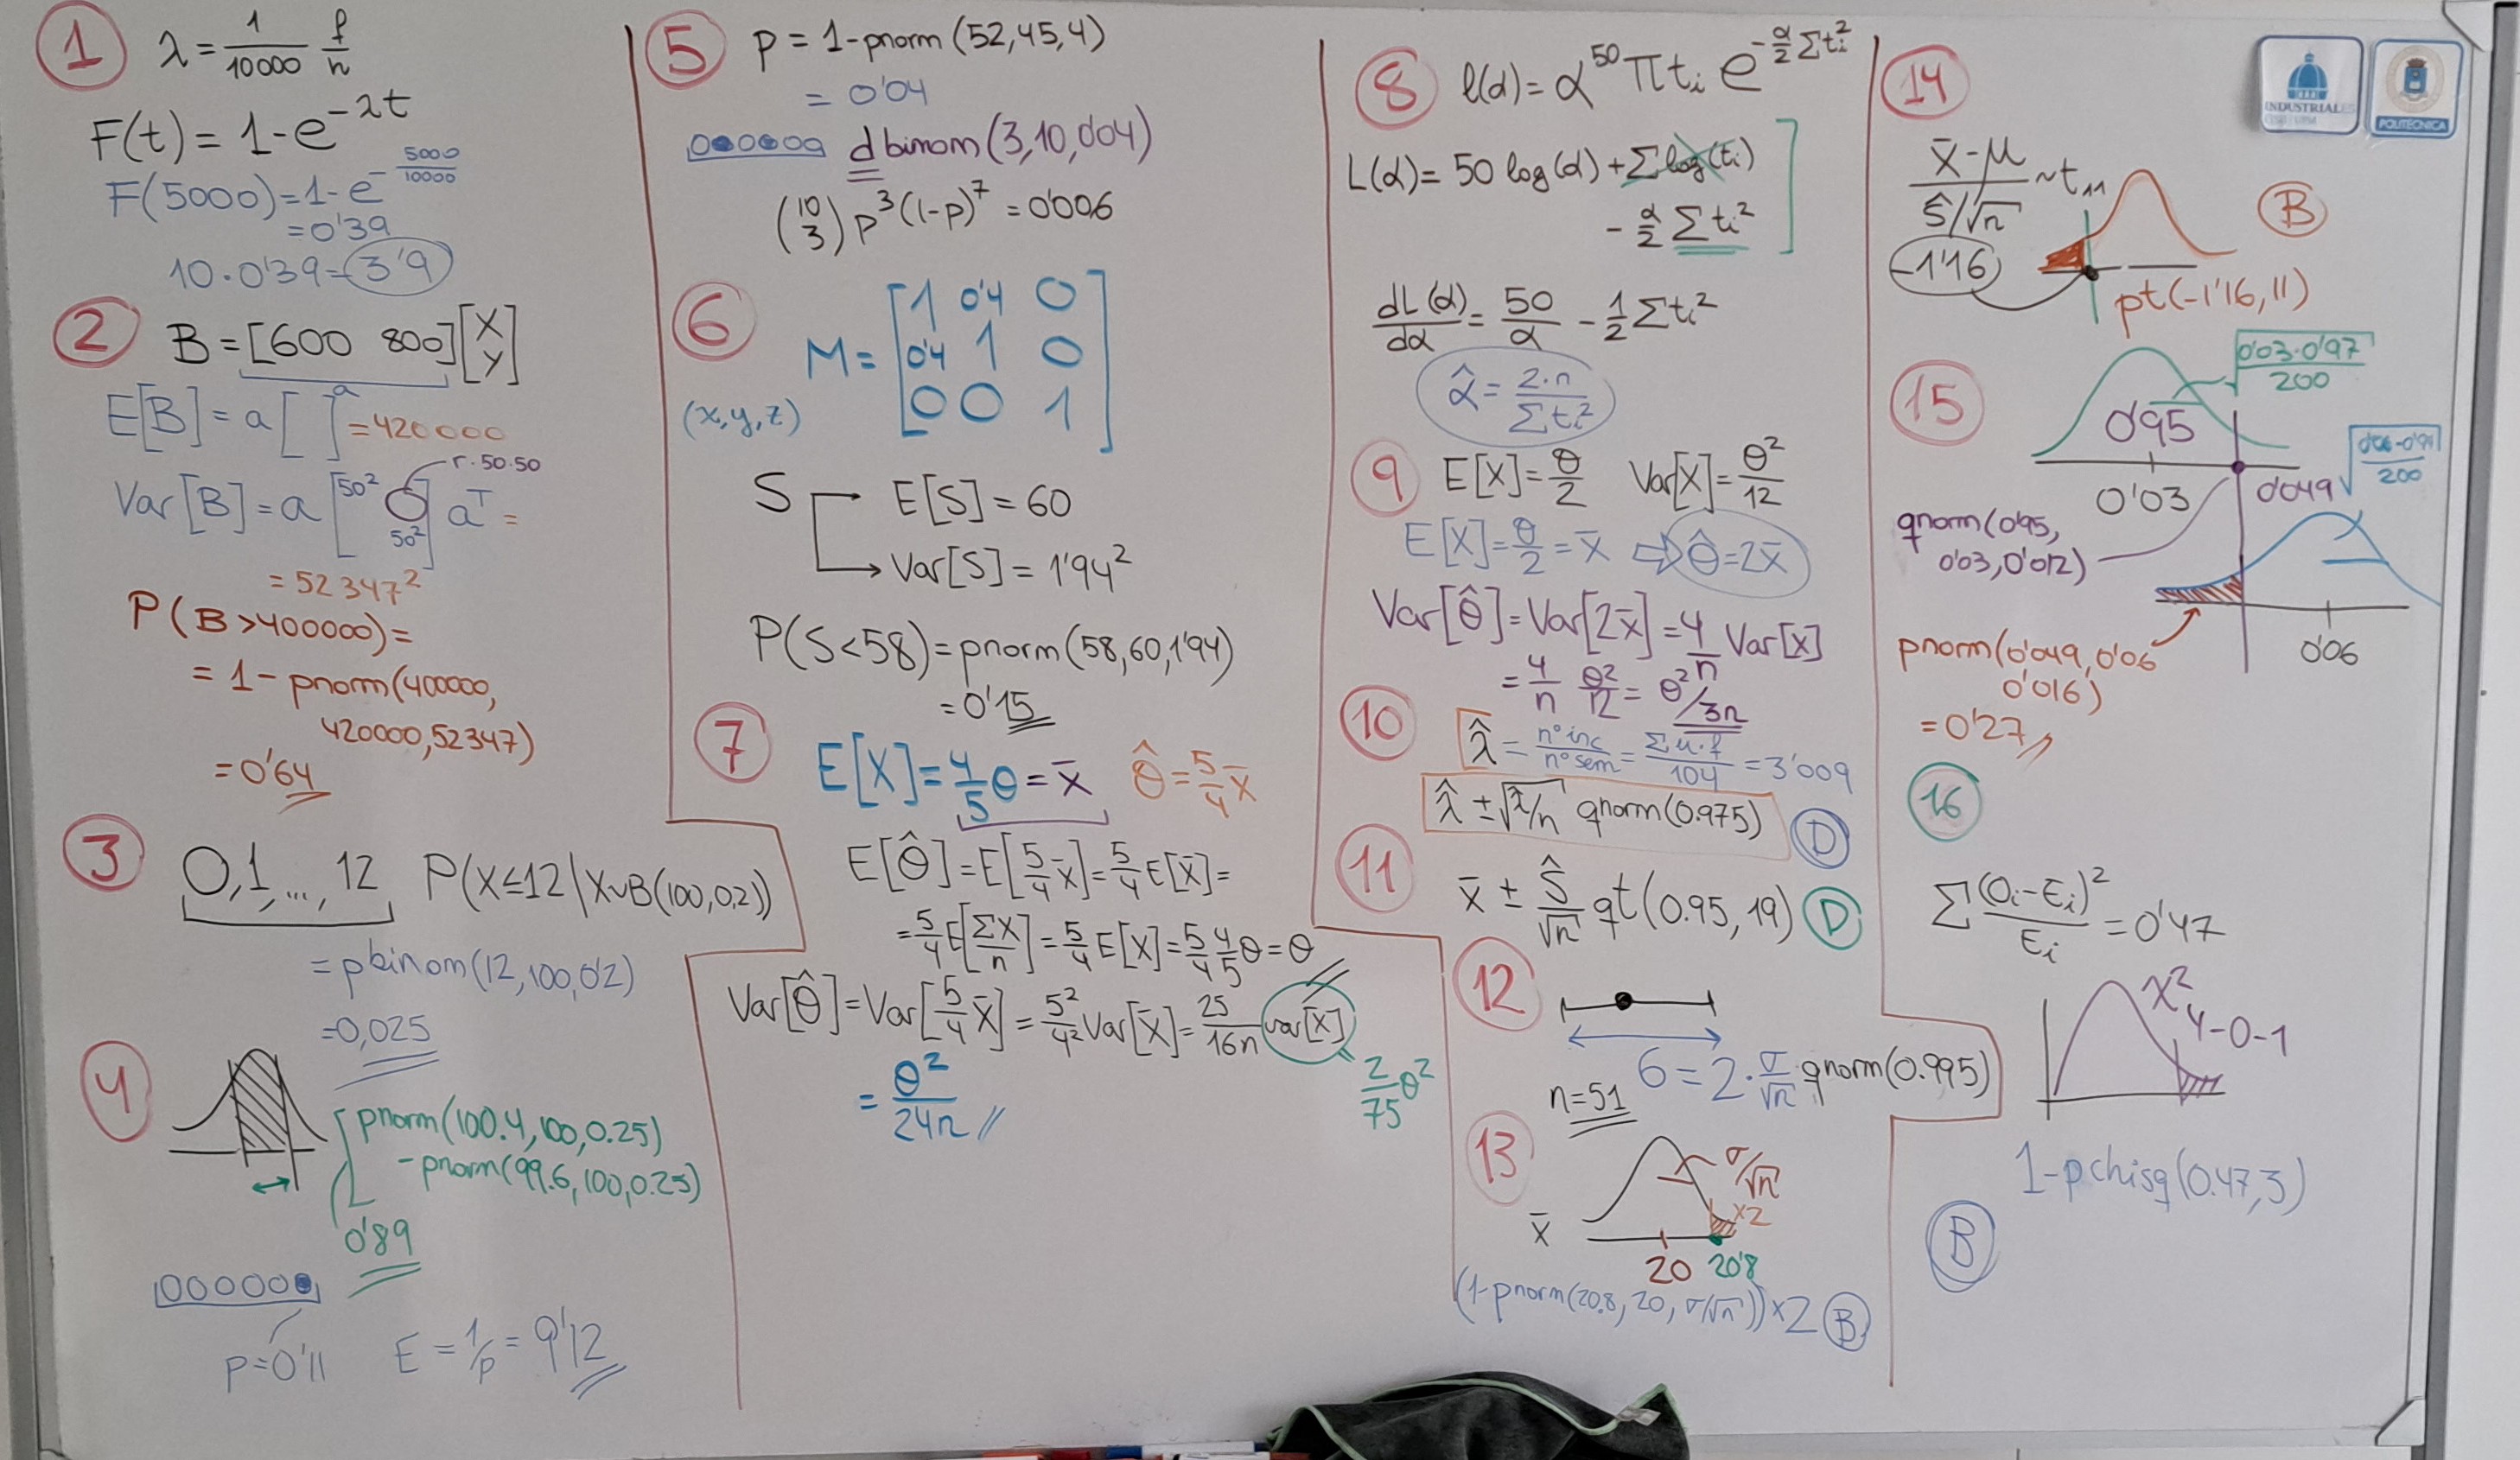 1 λ = 1/10000 f/h
F(t) = 1 - e^-λt
F(5000) = 1 - e^-5000/10000
= 0'39
10 · 0'39 = 3'9
2 B = [600 800] [X Y]
a
E[B] = a [ ] = 420000
r · 50 · 50
Var[B] = a [50² 50²] a^T =
= 52347²
P(B > 400000) =
= 1 - pnorm(400000,
420000, 52347)
= 0'64
3 0, 1, ..., 12 P(X ≤ 12 | X ~ B(100, 0.2))
= pbinom(12, 100, 0'2)
= 0,025
4
pnorm(100.4, 100, 0.25)
- pnorm(99.6, 100, 0.25)
0'89
p = 0'11 E = 1/p = 9'12
5 p = 1 - pnorm(52, 45, 4)
= 0'04
dbinom(3, 10, 0'04)
(10 3) p³ (1-p)⁷ = 0'006
6 M = [1 0'4 0
0'4 1 0
0 0 1]
(x, y, z)
S → E[S] = 60
→ Var[S] = 1'94²
P(S < 58) = pnorm(58, 60, 1'94)
= 0'15
7 E[X] = 4/5 θ = x̄ θ̂ = 5/4 x̄
E[θ̂] = E[5/4 x̄] = 5/4 E[x̄] =
= 5/4 E[ΣX/n] = 5/4 E[X] = 5/4 4/5 θ = θ
Var[θ̂] = Var[5/4 x̄] = 5²/4² Var[x̄] = 25/16n Var[X]
2/75 θ²
= θ²/24n
8 l(α) = α^50 π ti e^-α/2 Σti²
L(α) = 50 log(α) + Σ log(ti)
- α/2 Σ ti²
dL(α)/dα = 50/α - 1/2 Σti²
α̂ = 2·n/Σti²
9 E[X] = θ/2 Var[X] = θ²/12
E[X] = θ/2 = x̄ ⇒ θ̂ = 2x̄
Var[θ̂] = Var[2x̄] = 4/n Var[X]
= 4/n θ²/12 = θ²/3n
10 λ̂ = nº inc/nº sem = Σu·f/104 = 3'009
λ̂ ± √λ̂/n qnorm(0.975) D
11 x̄ ± Ŝ/√n qt(0.95, 19) D
12
6 = 2 · σ/√n qnorm(0.995)
n = 51
13
σ/√n
x2
x̄
20 20'8
(1 - pnorm(20.8, 20, σ/√n)) x 2 B
14
x̄ - μ / Ŝ/√n ~ t11 B
-1'16
pt(-1'16, 11)
15
√0'03·0'97/200
0'95
0'03 0'049
200
qnorm(0'95,
0'03, 0'012)
0'06
pnorm(0'049, 0'06
0'016)
= 0'27
16
Σ (Oi - Ei)²/Ei = 0'47
χ² 4-0-1
1 - pchisq(0.47, 3)
B
INDUSTRIALES
POLITÉCNICA